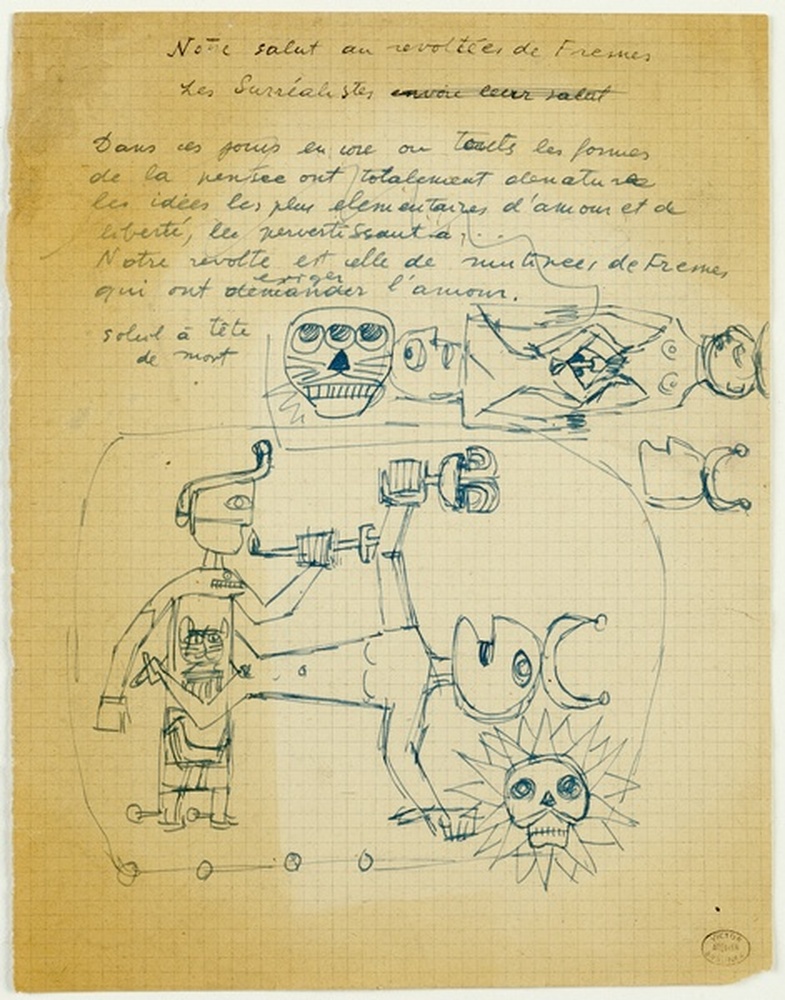 Notre salut au revoltées de Fresnes
Les Surréalistes envoie leur salut
Dans ces jours encore ou touts les formes
de la pensée ont totalement denature
les idées les plus elementaires d'amour et de
liberté, les pervertissant a, . .
Notre revolte est celle de mutinees de Fresnes
exiger
qui ont demander l'amour.
soleil à tête
de mort
VICTOR
BRAUNER